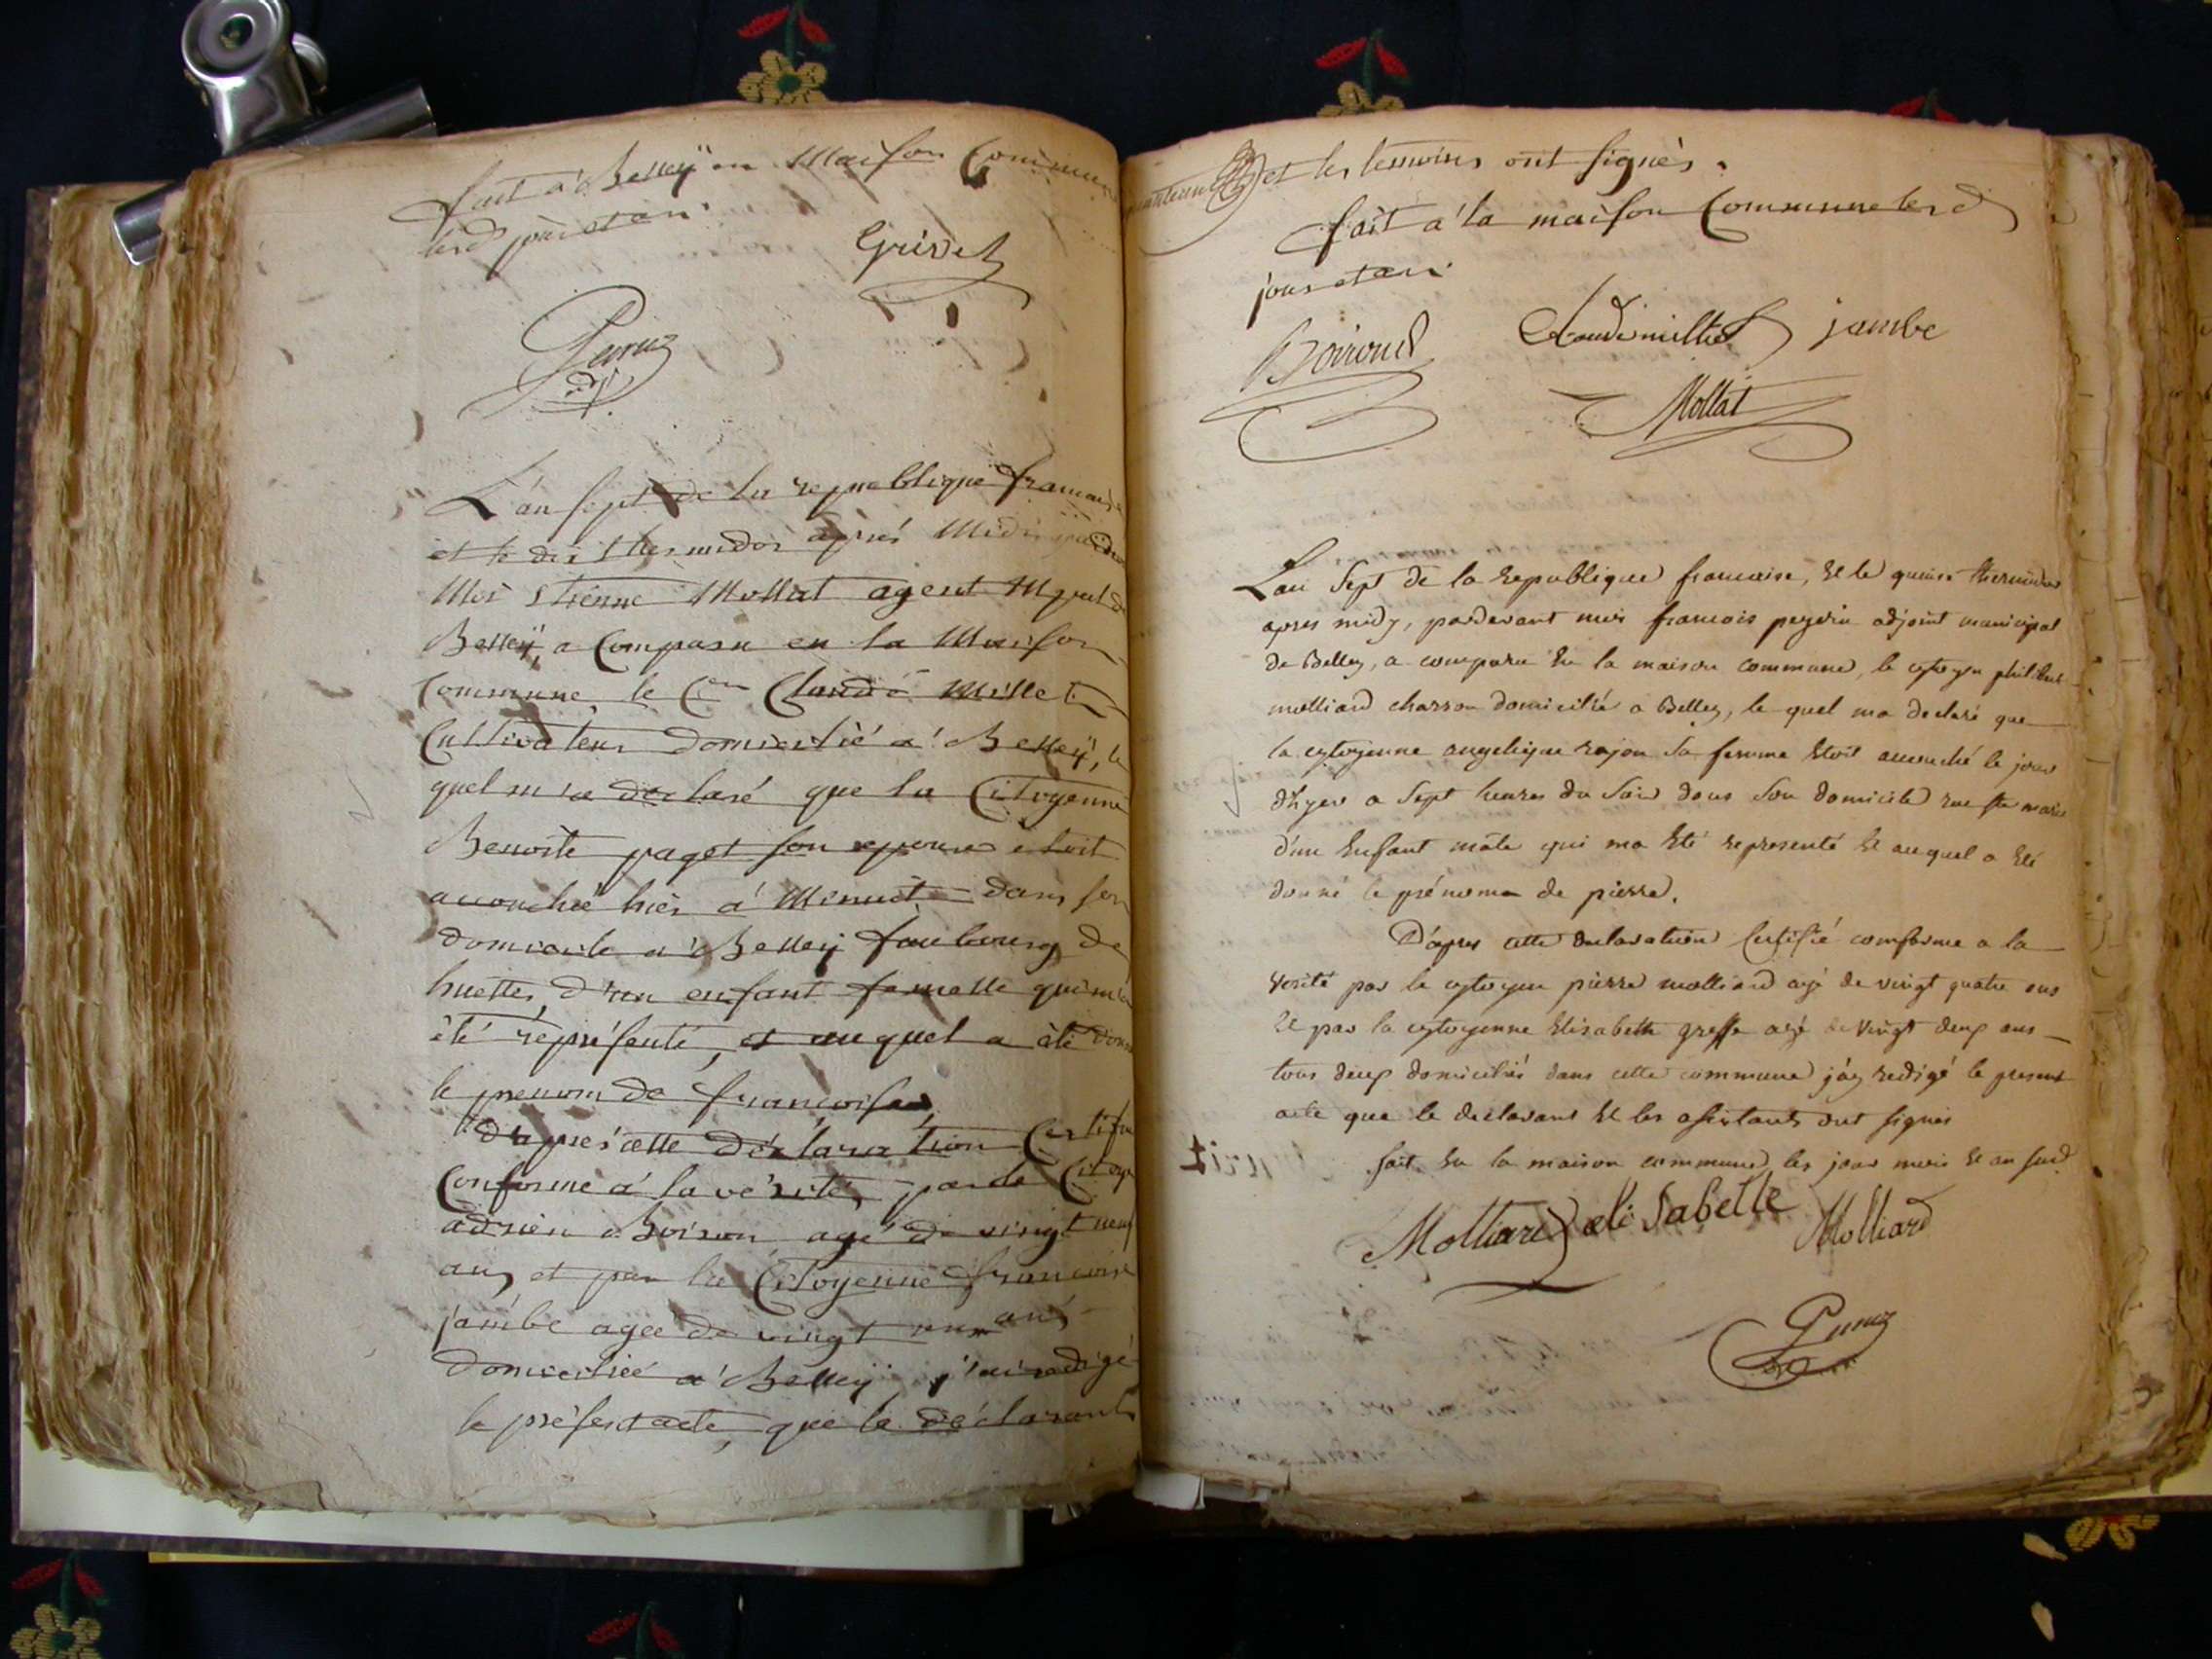 fait a Belleÿ en Maison Commune
lesd jour et an
Grivel
L'an sept de la republique francaise
et le dix thermidor après Midi
Moi Etienne Mollat agent Mpal de
Belleÿ, a Comparu en la Maison
Commune, le Cen Claude Millet
Cultivateur domicilié a Belleÿ, le
quel m'a déclaré que la Citoyenne
Benoite paget son epouse etoit
accouchée hier a Minuit dans son
domicile a Belleÿ faubourg de
huettes, d'un enfant femelle qui m'a
été répresenté, et auquel a été donné
le prenom de francoise,
d'apres cette Déclaration Certifié
Conforme a la vérité, par le Citoyen
adrien Boiron agé de vingt neuf
ans, et par la Citoyenne francoise
jambe agée de vingt un ans
domiciliée a Belleÿ j'ai redigé
le présent acte, que le déclarant
et les temoins ont signés.
fait a la maison Commune lesd
jour et an
Boiroud Claude millet jambe
Mollat
L'an Sept de la republique francaise, et le quinze thermidor
apres midy, pardevant moi francois peyzin adjoint municipal
de Belley, a comparu en la maison commune, le cytoyen philibert
molliard charron domicilié a Belley, le quel ma declaré que
la cytoyenne angelique rajon sa femme etoit accouché le jour
dhyer a sept heures du soir dans son domicile rue ste marie
d'un enfant mâle qui ma été representé et auquel a été
donné le prénom de pierre.
D'apres cette declaration certifié conforme a la
verité par le cytoyen pierre molliard agé de vingt quatre ans
et par la cytoyenne Elisabeth greffe agé de vingt deux ans
tous deux domiciliés dans cette commune j'ay redigé le present
acte que le declarant et les assistants ont signés
fait en la maison commune, les jour mois et an susd
Molliard elisabette Molliard